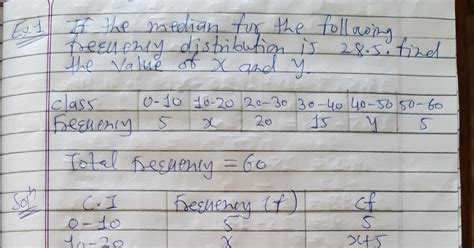 Ex.1 If the median for the following
frequency distribution is 28.5. find
the value of x and y.
class 0-10 10-20 20-30 30-40 40-50 50-60
frequency 5 x 20 15 y 5
Total frequency = 60
Solⁿ C.I frequency (f) cf
0-10 5 5
10-20 x x+5